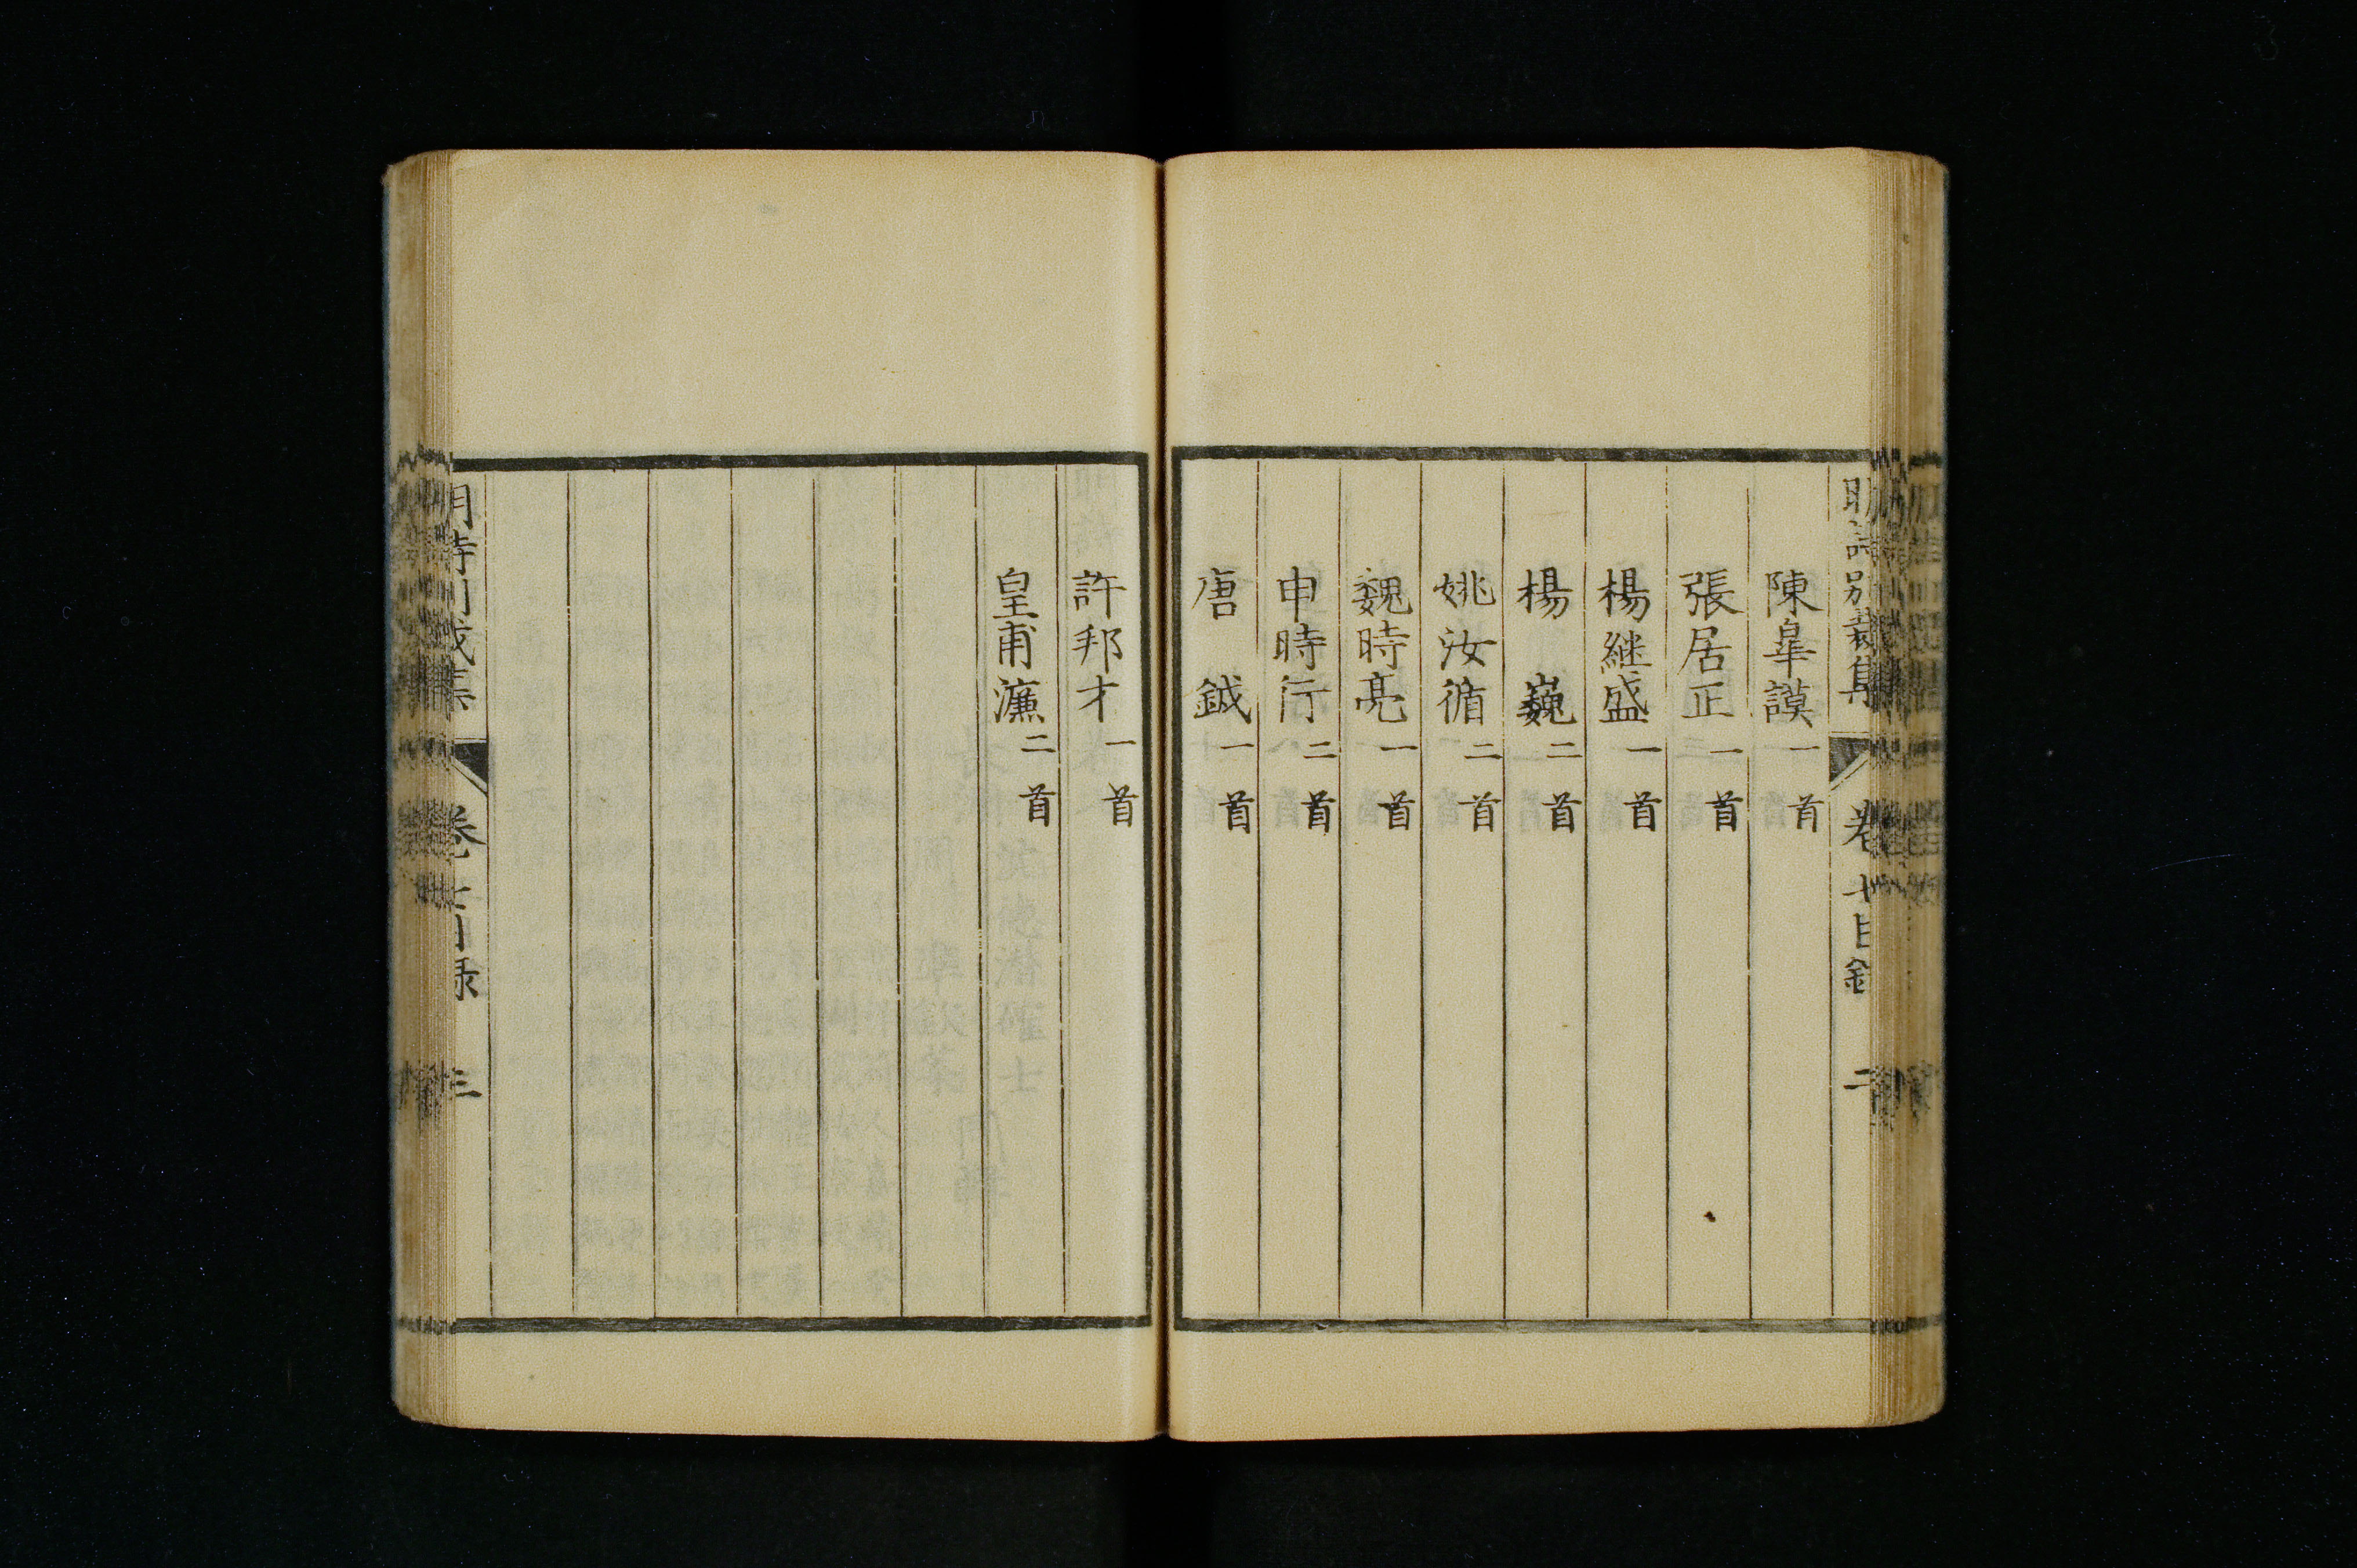 明詩別裁集 卷七目錄 二
陳臯謨一首
張居正一首
楊繼盛一首
楊巍二首
姚汝循二首
魏時亮一首
申時行二首
唐鉞一首
許邦才一首
皇甫濂二首
明詩別裁集 卷七目錄 三